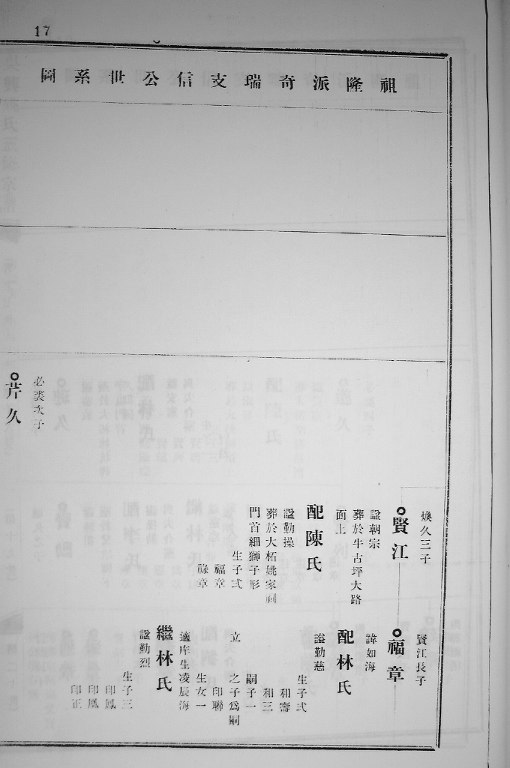 17
祖隆派奇瑞支信公世系圖
煥久三子
賢江
諡朝宗
葬於牛古坪大路
面上
配陳氏
諡勤操
葬於大柘姚家祠
門首獅子形
生子弍
福章
祿章
賢江長子
福章
諱如海
配林氏
諡勤慈
生子弍
和壽
和三
嗣子一
印聯
立
之子爲嗣
生女一
庠生凌辰海
繼林氏
諡勤烈
生子三
印鳳
印鳳
印正
必裘次子
芹久